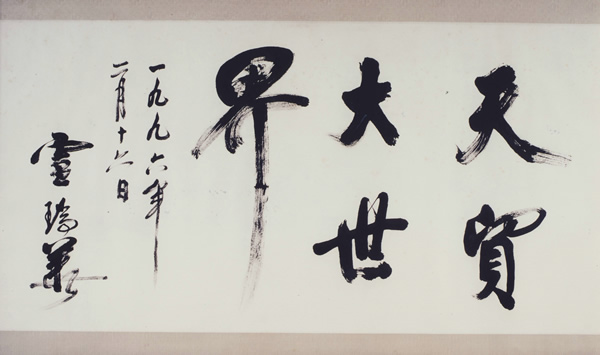 天貿
大世
界
一九九六年
二月十六日
盧瑞華